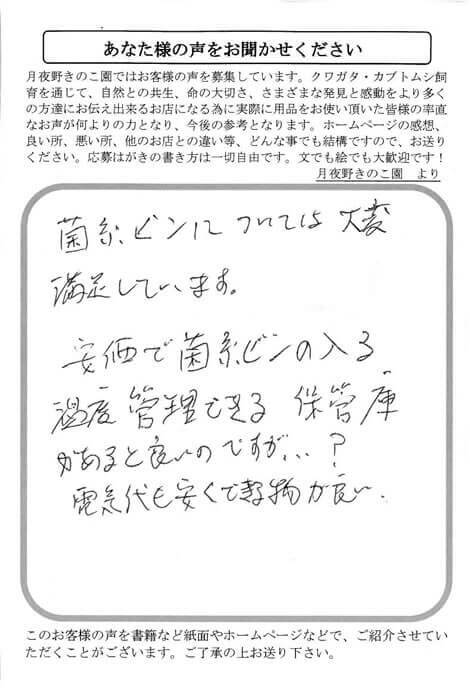 あなた様の声をお聞かせください
月夜野きのこ園ではお客様の声を募集しています。クワガタ・カブトムシ飼
育を通じて、自然との共生、命の大切さ、さまざまな発見と感動をより多く
の方達にお伝え出来るお店になる為に実際に用品をお使い頂いた皆様の率直
なお声が何よりの力となり、今後の参考となります。ホームページの感想、
良い所、悪い所、他のお店との違い等、どんな事でも結構ですので、お送り
ください。応募はがきの書き方は一切自由です。文でも絵でも大歓迎です！
月夜野きのこ園　より
菌糸ビンについては大変
満足しています。
安価で菌糸ビンの入る
温度管理できる保管庫
があると良いのですが…？
電気代も安くで が良い.
このお客様の声を書籍など紙面やホームページなどで、ご紹介させてい
ただくことがございます。ご了承の上お送り下さい。